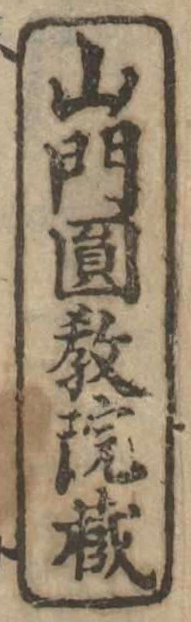 山門圓教院蔵